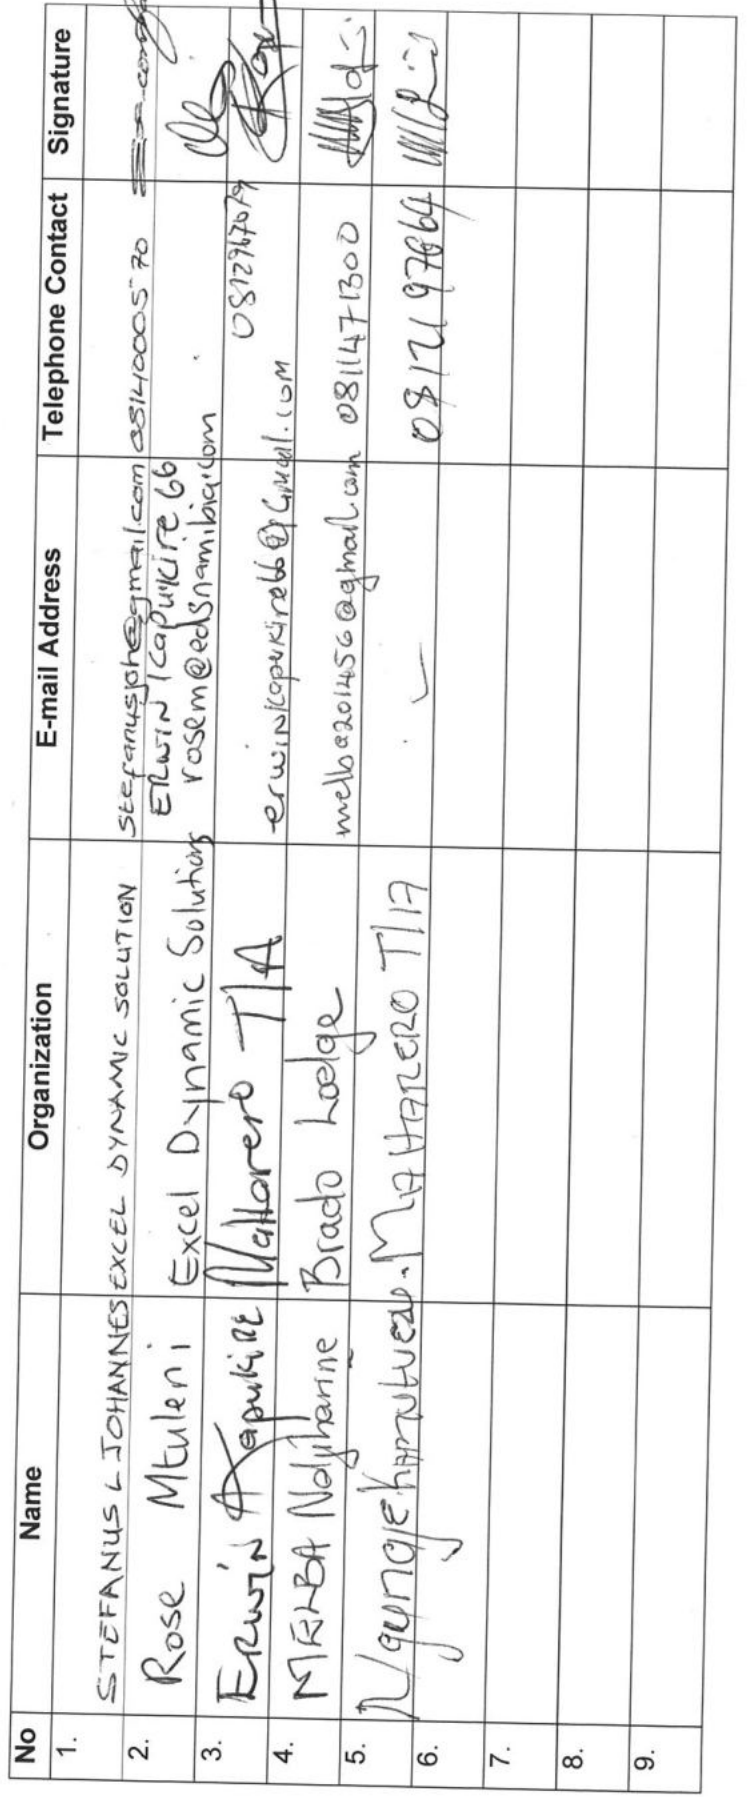 No Name Organization E-mail Address Telephone Contact Signature
1. STEFANUS L JOHANNES EXCEL DYNAMIC SOLUTION stefanusjoh@gmail.com 0814000570
ERWIN Kapukire 66
2. Rose Mtuleni Excel Dynamic Solutions rosem@edsnamibia.com
3. ERWIN Kapukire Maharero T/A erwinkapukire66@gmail.com 0812967679
4. MELBA Ndjiharine Brado Lodge melba201456@gmail.com 0811471300
5. MAHARERO T/A
6.
7.
8.
9.